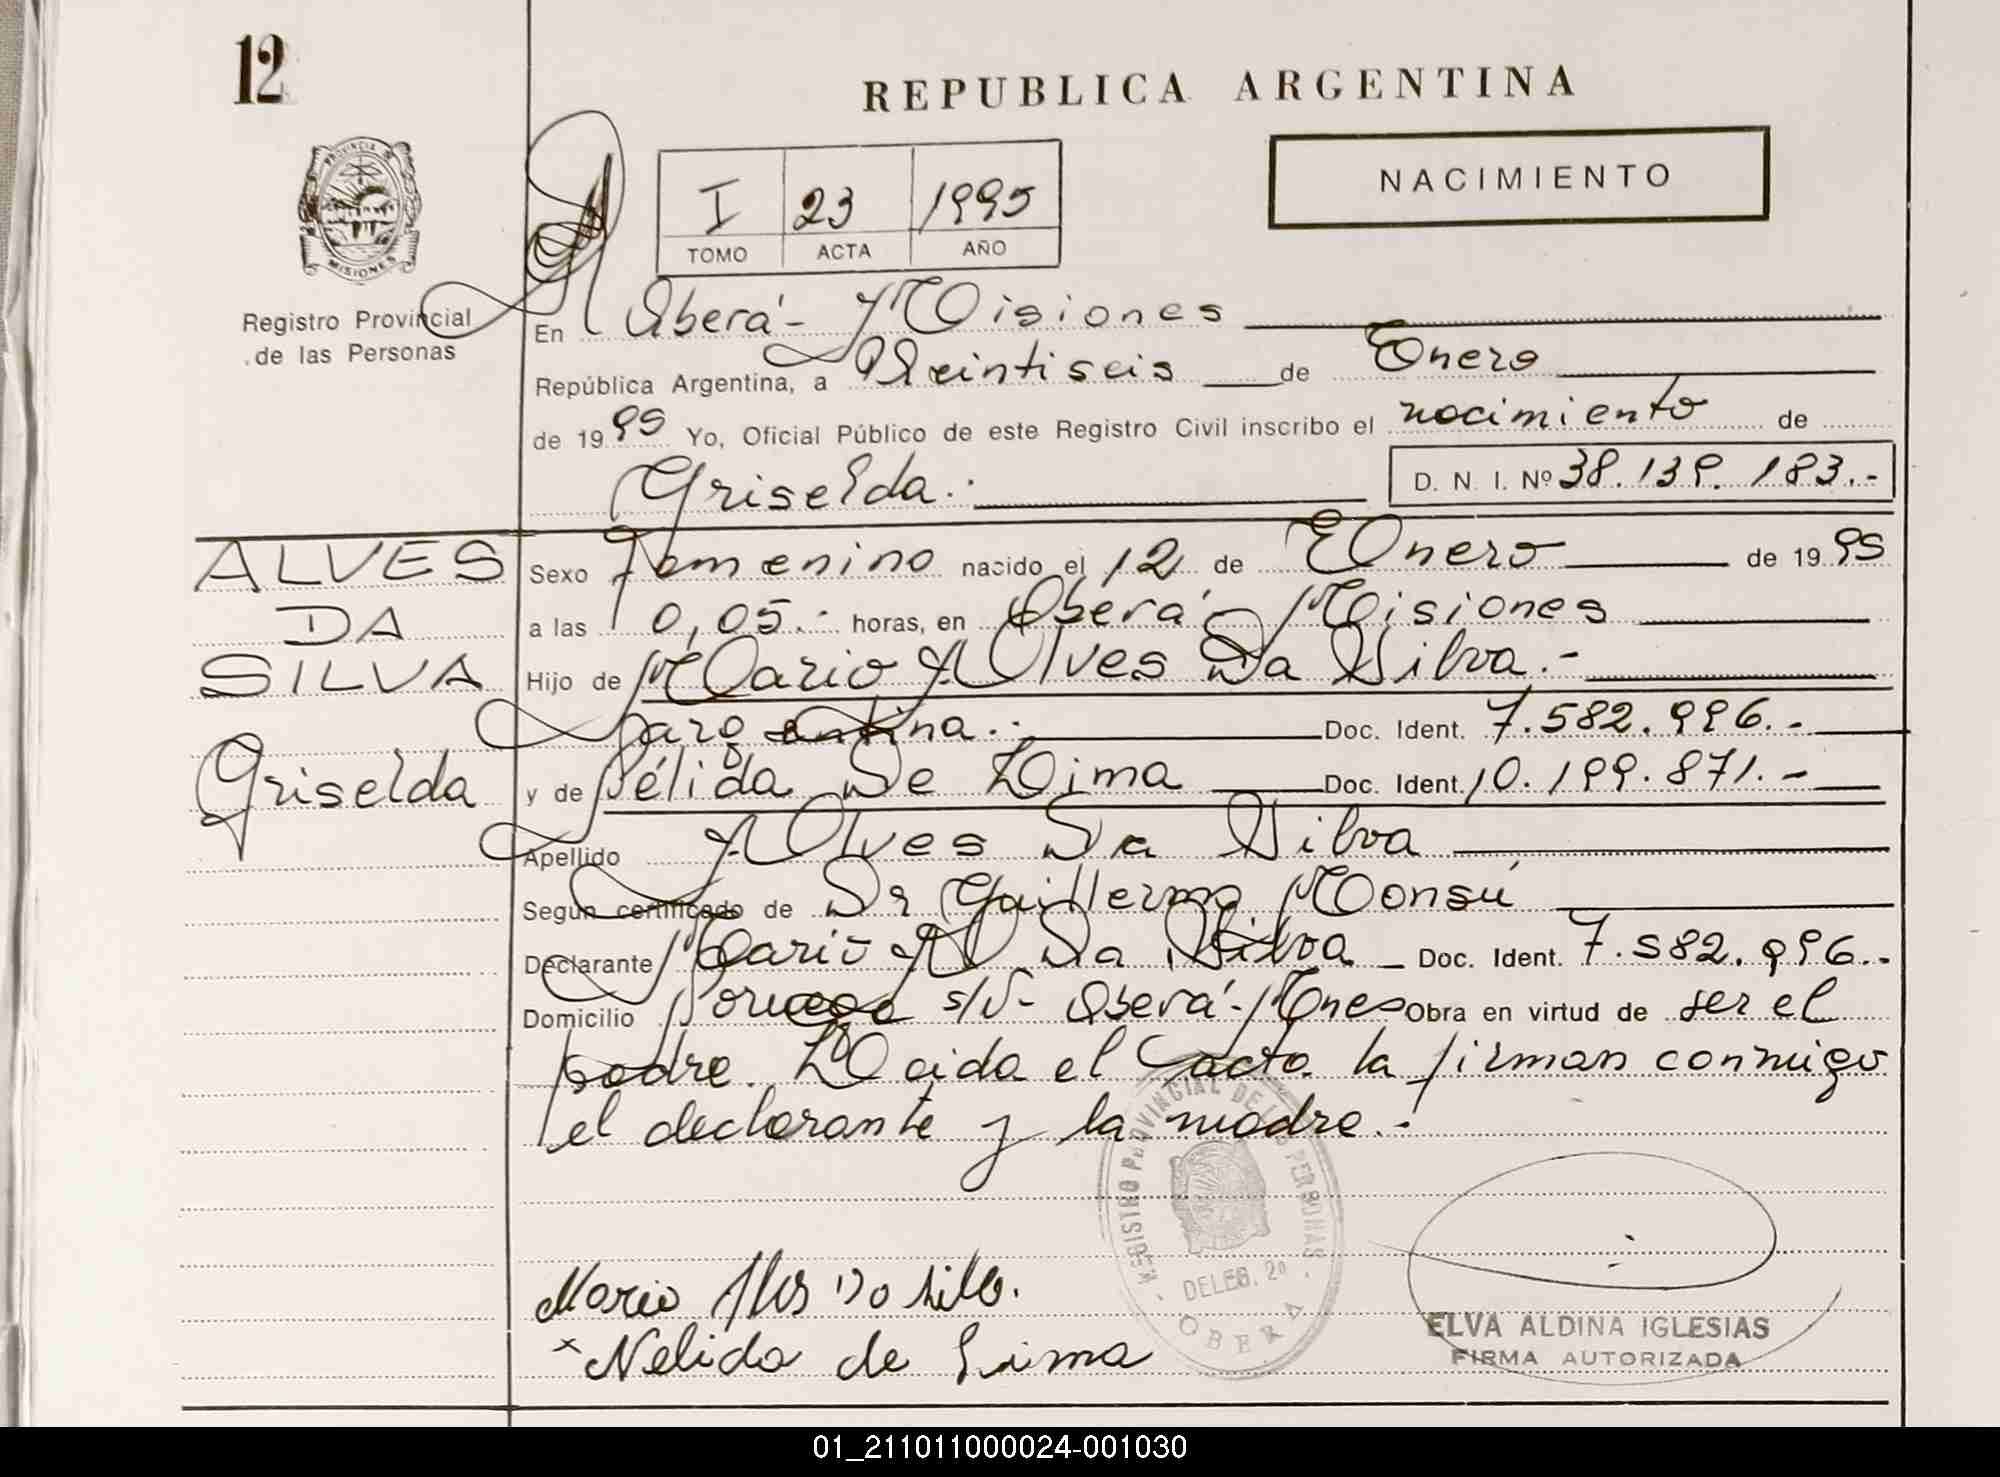 12
REPUBLICA ARGENTINA
NACIMIENTO
PROVINCIA DE MISIONES
I 23 1995
TOMO ACTA AÑO
Registro Provincial
de las Personas
En Oberá - Misiones
República Argentina, a Veintiseis de Enero
de 1995 Yo, Oficial Público de este Registro Civil inscribo el nacimiento de
Griselda.- D. N. I. Nº 38.139.183.-
ALVES
DA
SILVA
Griselda
Sexo Femenino nacido el 12 de Enero de 1995
a las 0,05.- horas, en Oberá - Misiones
Hijo de Mario Alves Da Silva.-
argentina.- Doc. Ident. 7.582.996.-
y de Nélida De Lima Doc. Ident. 10.199.871.-
Apellido Alves Da Silva
Según certificado de Dr Guillermo Monsú
Declarante Mario A Da Silva Doc. Ident. 7.582.996.-
Domicilio s/n - Oberá - Mnes Obra en virtud de ser el
padre. Leida el acta la firman conmigo
el declarante y la madre.-
REGISTRO PROVINCIAL DE LAS PERSONAS
DELEG. 2ª
OBERA
Mario Alves Da Silva.
x Nelida de Lima
ELVA ALDINA IGLESIAS
FIRMA AUTORIZADA
01_211011000024-001030